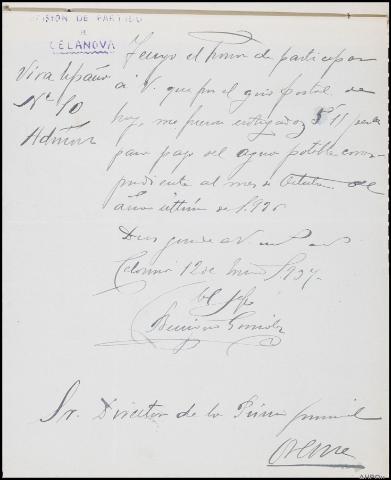 PRISIÓN DE PARTIDO
DE
CELANOVA
Viva España
Nº 10
Admón
Tengo el honor de participar
a V. que por el giro postal de
hoy, me fueron entregadas 5'11 
para pago del agua potable corres-
pondiente al mes de Octubre del
año último de 1.936
Dios guarde a V.
Celanova 12 de 1.937
El Jefe
Sr. Director de la Prisión provincial
Orense